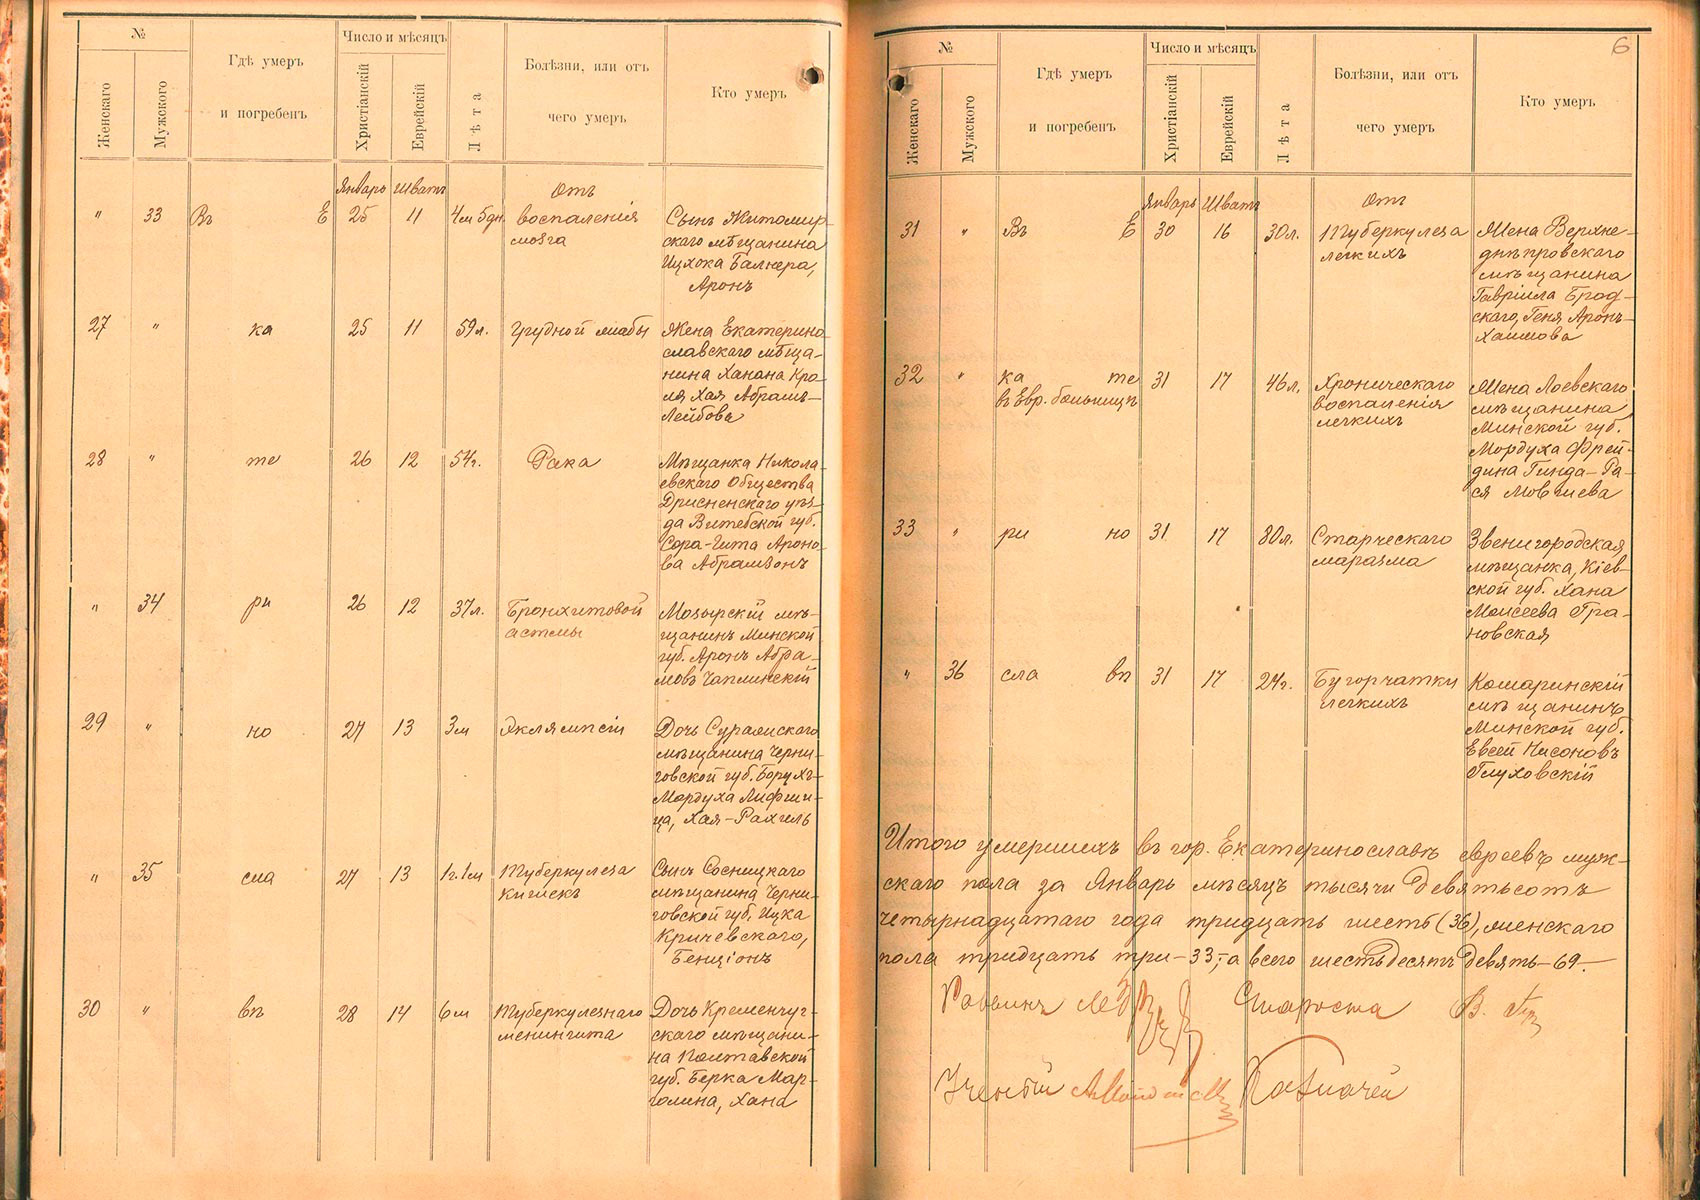 №
Женскаго
Мужского
Гдѣ умеръ
и погребенъ
Число и мѣсяцъ
Христіанскій
Еврейскій
Лѣта
Болѣзни, или отъ
чего умеръ
Кто умеръ
Январь Шватъ Отъ
" 33 Въ Е 25 11 4м 5дн. воспаленія
мозга
Сынъ Житомир-
скаго мѣщанина
Ицхока Балнера,
Аронъ
27 " ка 25 11 59л. Грудной жабы
Жена Екатерино-
славскаго мѣща-
нина Ханана Кро-
ля Хая Абрамъ-
Лейбова
28 " те 26 12 54г. Рака
Мѣщанка Никола-
евскаго Общества
Дрисненскаго уѣз-
да Витебской губ.
Сора-Гита Ароно-
ва Абрамзонъ
" 34 ри 26 12 37л. Бронхитовой
астмы
Мозырскій мѣ-
щанинъ Минской
губ. Аронъ Абра-
мовъ Чаплинскій
29 " но 27 13 3м Эклямпсіи
Дочь Суражскаго
мѣщанина Черни-
говской губ. Борухъ-
Мордуха Лифши-
ца, Хая-Рахиль
" 35 сла 27 13 1г.1м Туберкулеза
кишекъ
Сынъ Сосницкаго
мѣщанина Черни-
говской губ. Ицка
Кричевскаго,
Бенціонъ
30 " вѣ 28 14 6м Туберкулезнаго
менингита
Дочь Кременчуг-
скаго мѣщани-
на Полтавской
губ. Берка Мар-
голина, Хана
6
№
Женскаго
Мужского
Гдѣ умеръ
и погребенъ
Число и мѣсяцъ
Христіанскій
Еврейскій
Лѣта
Болѣзни, или отъ
чего умеръ
Кто умеръ
Январь Шватъ Отъ
31 " Въ Е 30 16 30л. Туберкулеза
легкихъ
Жена Верхне-
днѣпровскаго
мѣщанина
Гавріила Брод-
скаго, Геня Аронъ-
Хаимова
32 " ка те 31 17 46л. Хроническаго
въ Евр. больницѣ
воспаленія
легкихъ
Жена Лоевскаго
мѣщанина
Минской губ.
Мордуха Фрей-
дина Гинда-Ра-
ся Мовшева
33 " ри но 31 17 80л. Старческаго
маразма
Звенигородская
мѣщанка, Кіев-
ской губ. Хана
Моисеева Гра-
новская
" 36 сла вѣ 31 17 24г. Бугорчатки
легкихъ
Комаринскій
мѣщанинъ
Минской губ.
Евсей Нисоновъ
Глуховскій
Итого умершихъ въ гор. Екатеринославѣ евреевъ муж-
скаго пола за Январь мѣсяцъ тысяча девятьсотъ
четырнадцатаго года тридцать шесть (36), женскаго
пола тридцать три-33,-а всего шестьдесятъ девять-69.-
Раввинъ Староста В.
Ученый Казначей